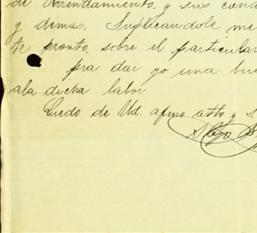 de Arrendamiento, y sus cond
y demas. Suplicandole me
te pronto, sobre el particular
pra dar yo una bue
ala dicha labor
Quedo de Ud. afmo atto y S